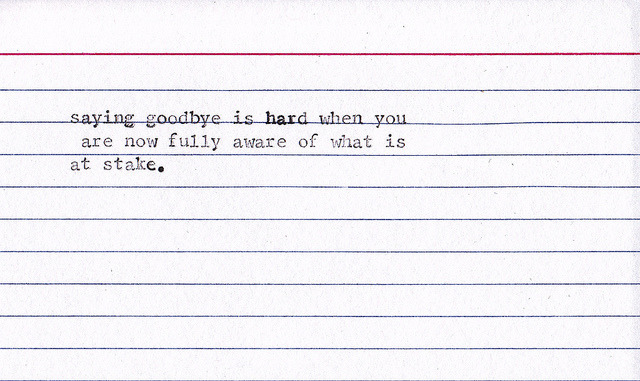 saying goodbye is hard when you
are now fully aware of what is
at stake.